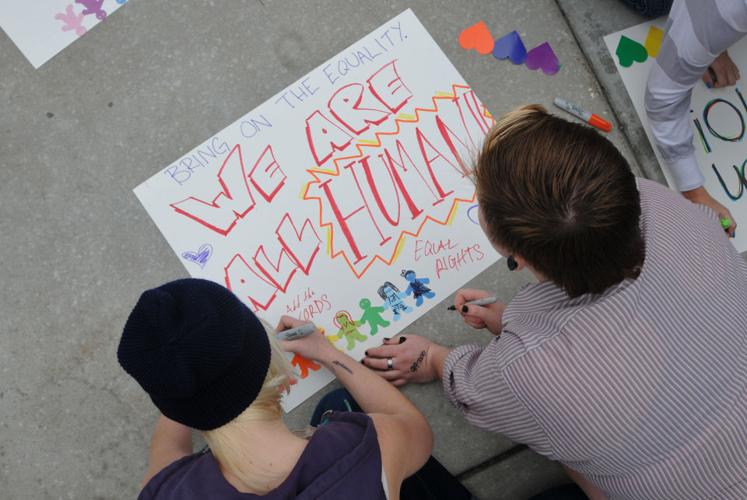 BRING ON THE EQUALITY.
WE ARE
ALL HUMAN
EQUAL
RIGHTS
Add the